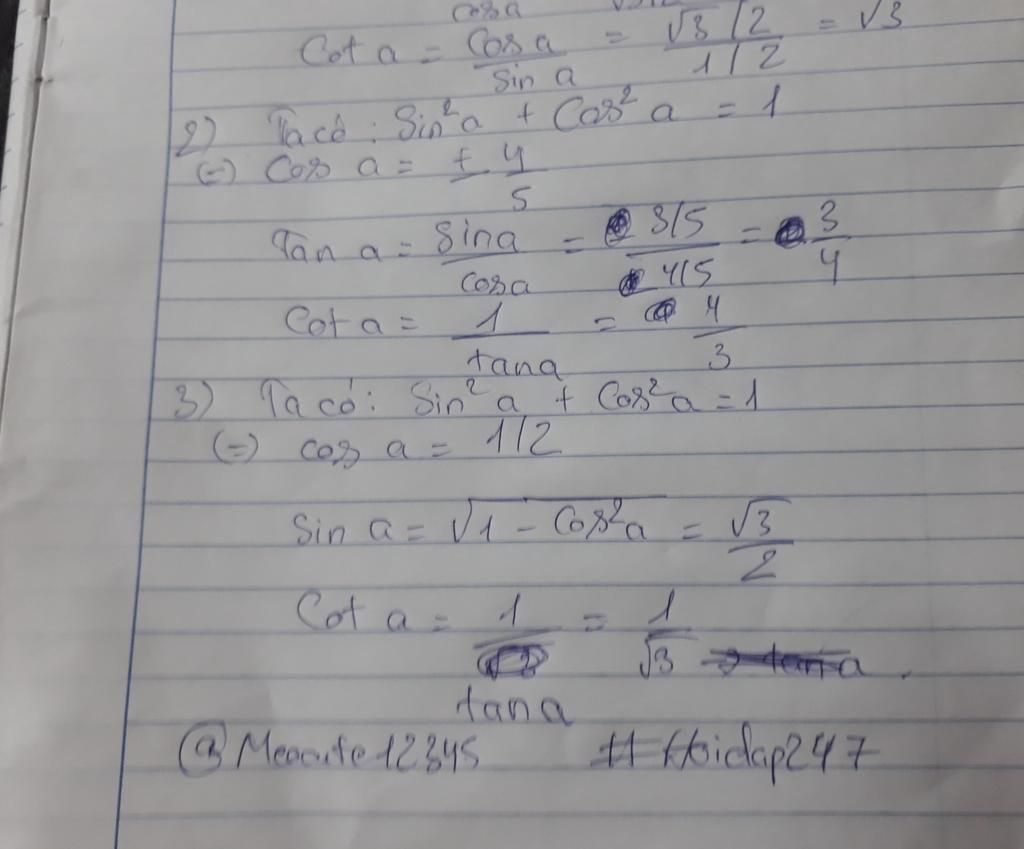 cosa
Cot a = Cosa / Sin a = √3/2 / 1/2 = √3
2) Ta có: Sin²a + Cos²a = 1
(=) Cos a = ± 4/5
Tan a = Sina / cosa = 3/5 / 4/5 = 3/4
Cot a = 1 / tana = 4/3
3) Ta có: Sin²a + Cos²a = 1
(=) cos a = 1/2
Sin a = √1 - Cos²a = √3/2
Cot a = 1 / tana = 1/√3
#Hoidap247